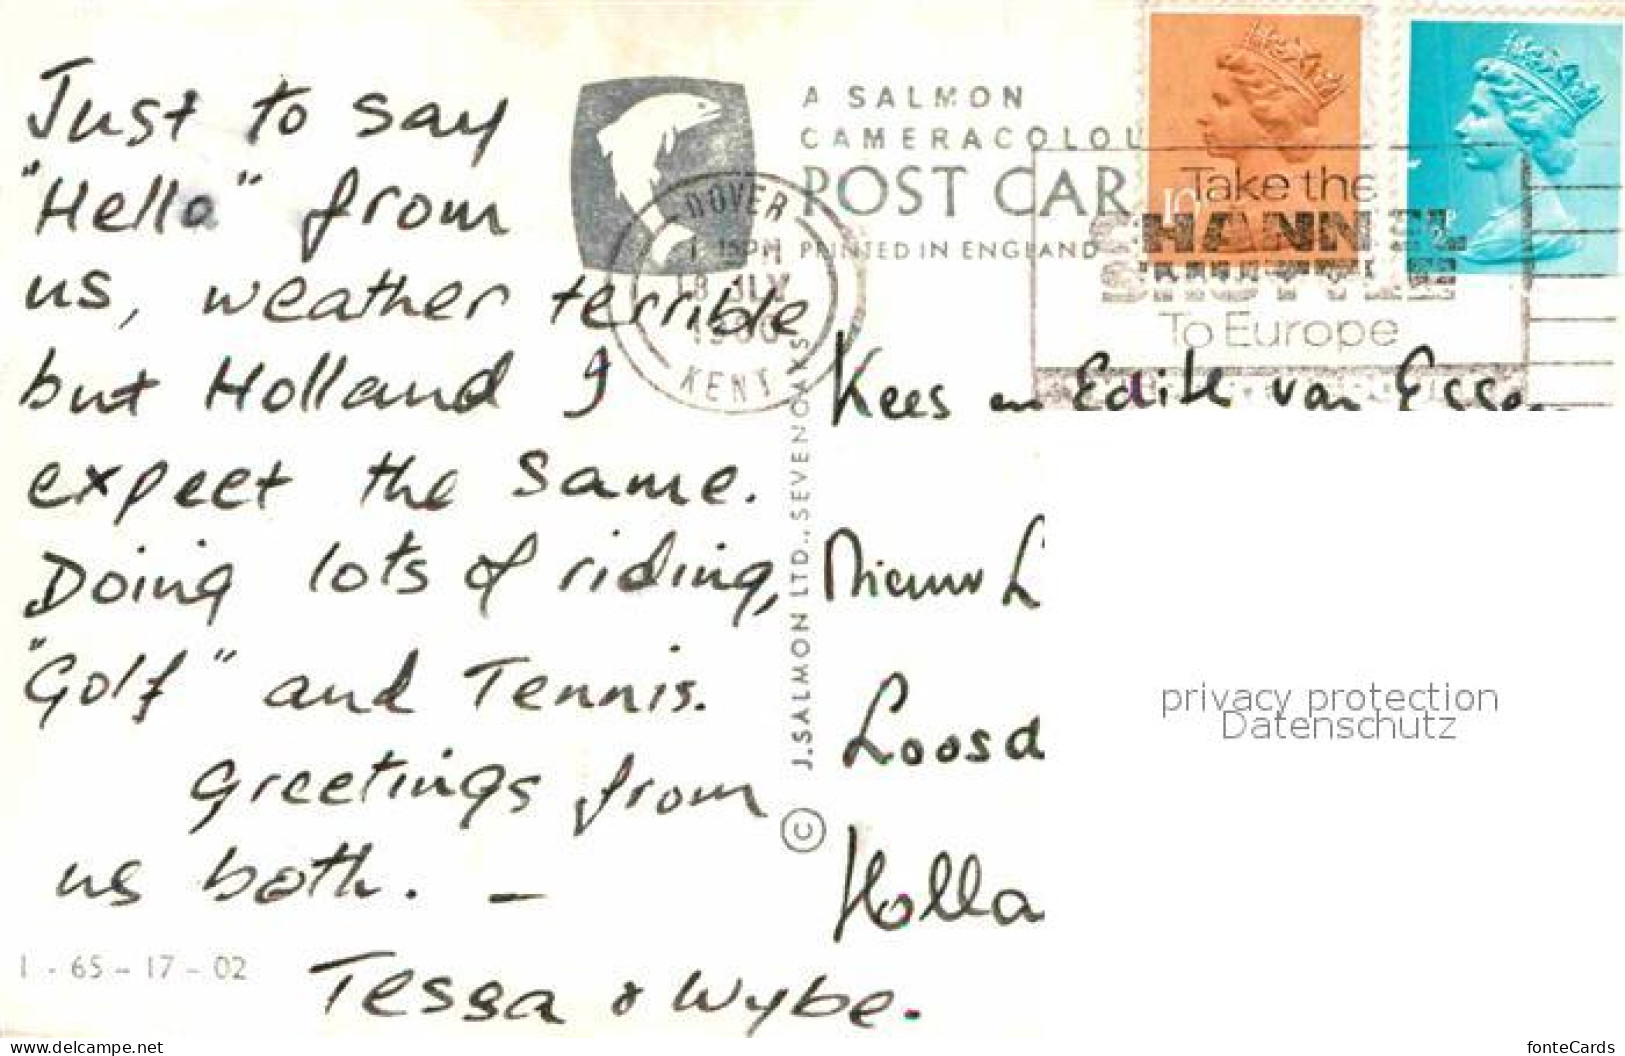 Just to say
"Hello" from
us, weather terrible
but Holland I
expect the same.
Doing lots of riding,
"Golf" and Tennis.
Greetings from
us both. –
Tessa & Wybe.
1 - 65 - 17 - 02
A SALMON
CAMERACOLOU
POST CAR
PRINTED IN ENGLAND
DOVER
PM
18 JLY
KENT
10
Take the
CHANNEL
SHUTTLE
To Europe
© J. SALMON LTD., SEVENOAKS
Kees en Edith van Essen
Nieuw L
Loosd
Holla
privacy protection
Datenschutz
www.delcampe.net
fonteCards